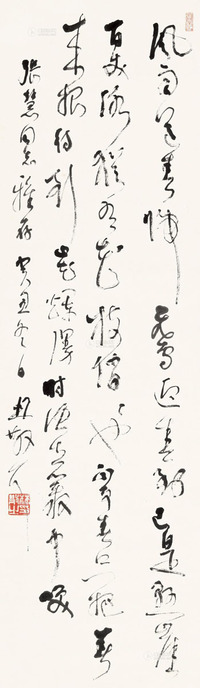 风雨送春归飞雪迎春到已是悬崖
百丈冰犹有花枝俏俏也不争春只把春
来报待到山花烂漫时她在丛中笑
张慧同志雅存癸丑冬日林散耳